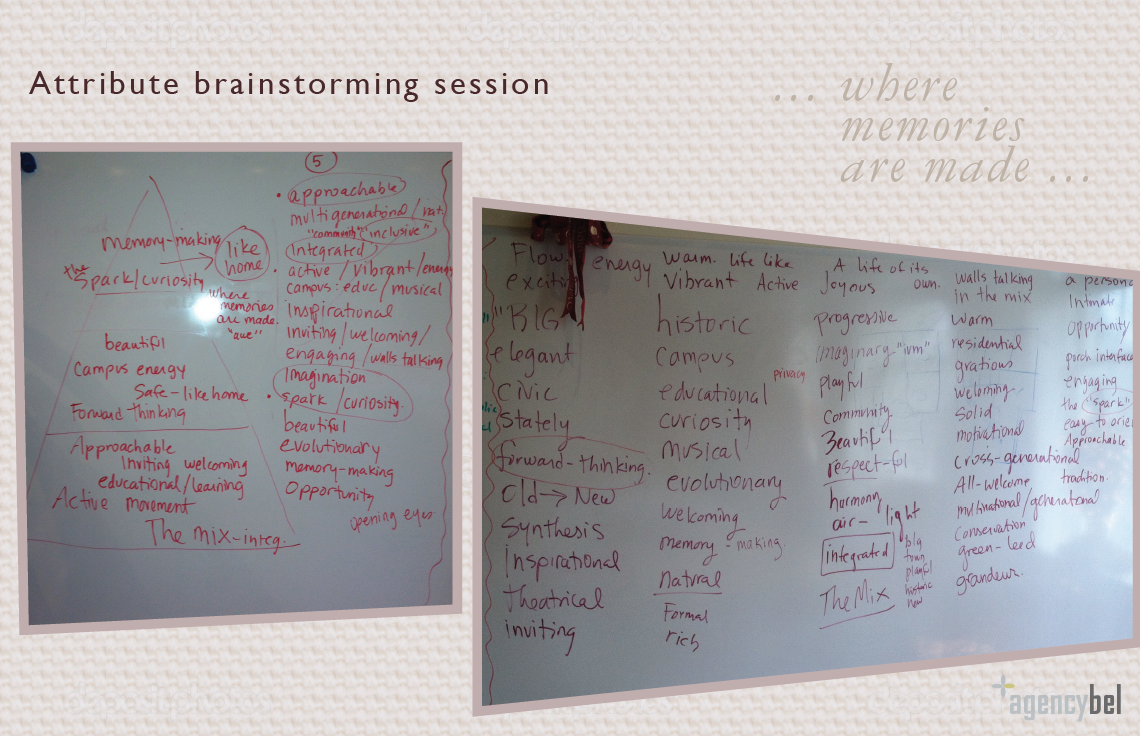 Attribute brainstorming session
... where
memories
are made ...
memory-making
like
home
the
Spark/curiosity
where
memories
are made.
"aue"
beautiful
Campus energy
Safe-like home
Forward thinking
Approachable
Inviting welcoming
educational/learning
Active movement
The mix-integ.
5
• approachable
multigenerational/nat.
"community" "inclusive"
Integrated
• active / vibrant / energy
campus: educ / musical
inspirational
inviting/welcoming/
engaging /walls talking
Imagination
• spark / curiosity.
beautiful
evolutionary
memory-making
Opportunity
opening eyes
Flow energy
"BIG
elegant
Civic
Stately
forward-thinking.
Old → New
Synthesis
Inspirational
theatrical
inviting
Warm. life like
Vibrant Active
historic
Campus
privacy
educational
curiosity
musical
evolutionary
welcoming
memory-making.
natural
Formal
rich
A life of its
Joyous own.
progressive
Imaginary-"ivm"
playful
Community
Beautiful
respect-ful
harmony
air-light
integrated
big
town
playful
historic
new
The Mix
walls talking
in the mix
warm
residential
gratious
weloming
Solid
motivational
cross-generational
All-welcome
multinational/generational
Conservation
green-leed
grandeur.
a persona
Intimate
Opportunity
porch interface
engaging
the "spark"
easy-to orie
Approachable
tradition.
agencybel
depositphotos